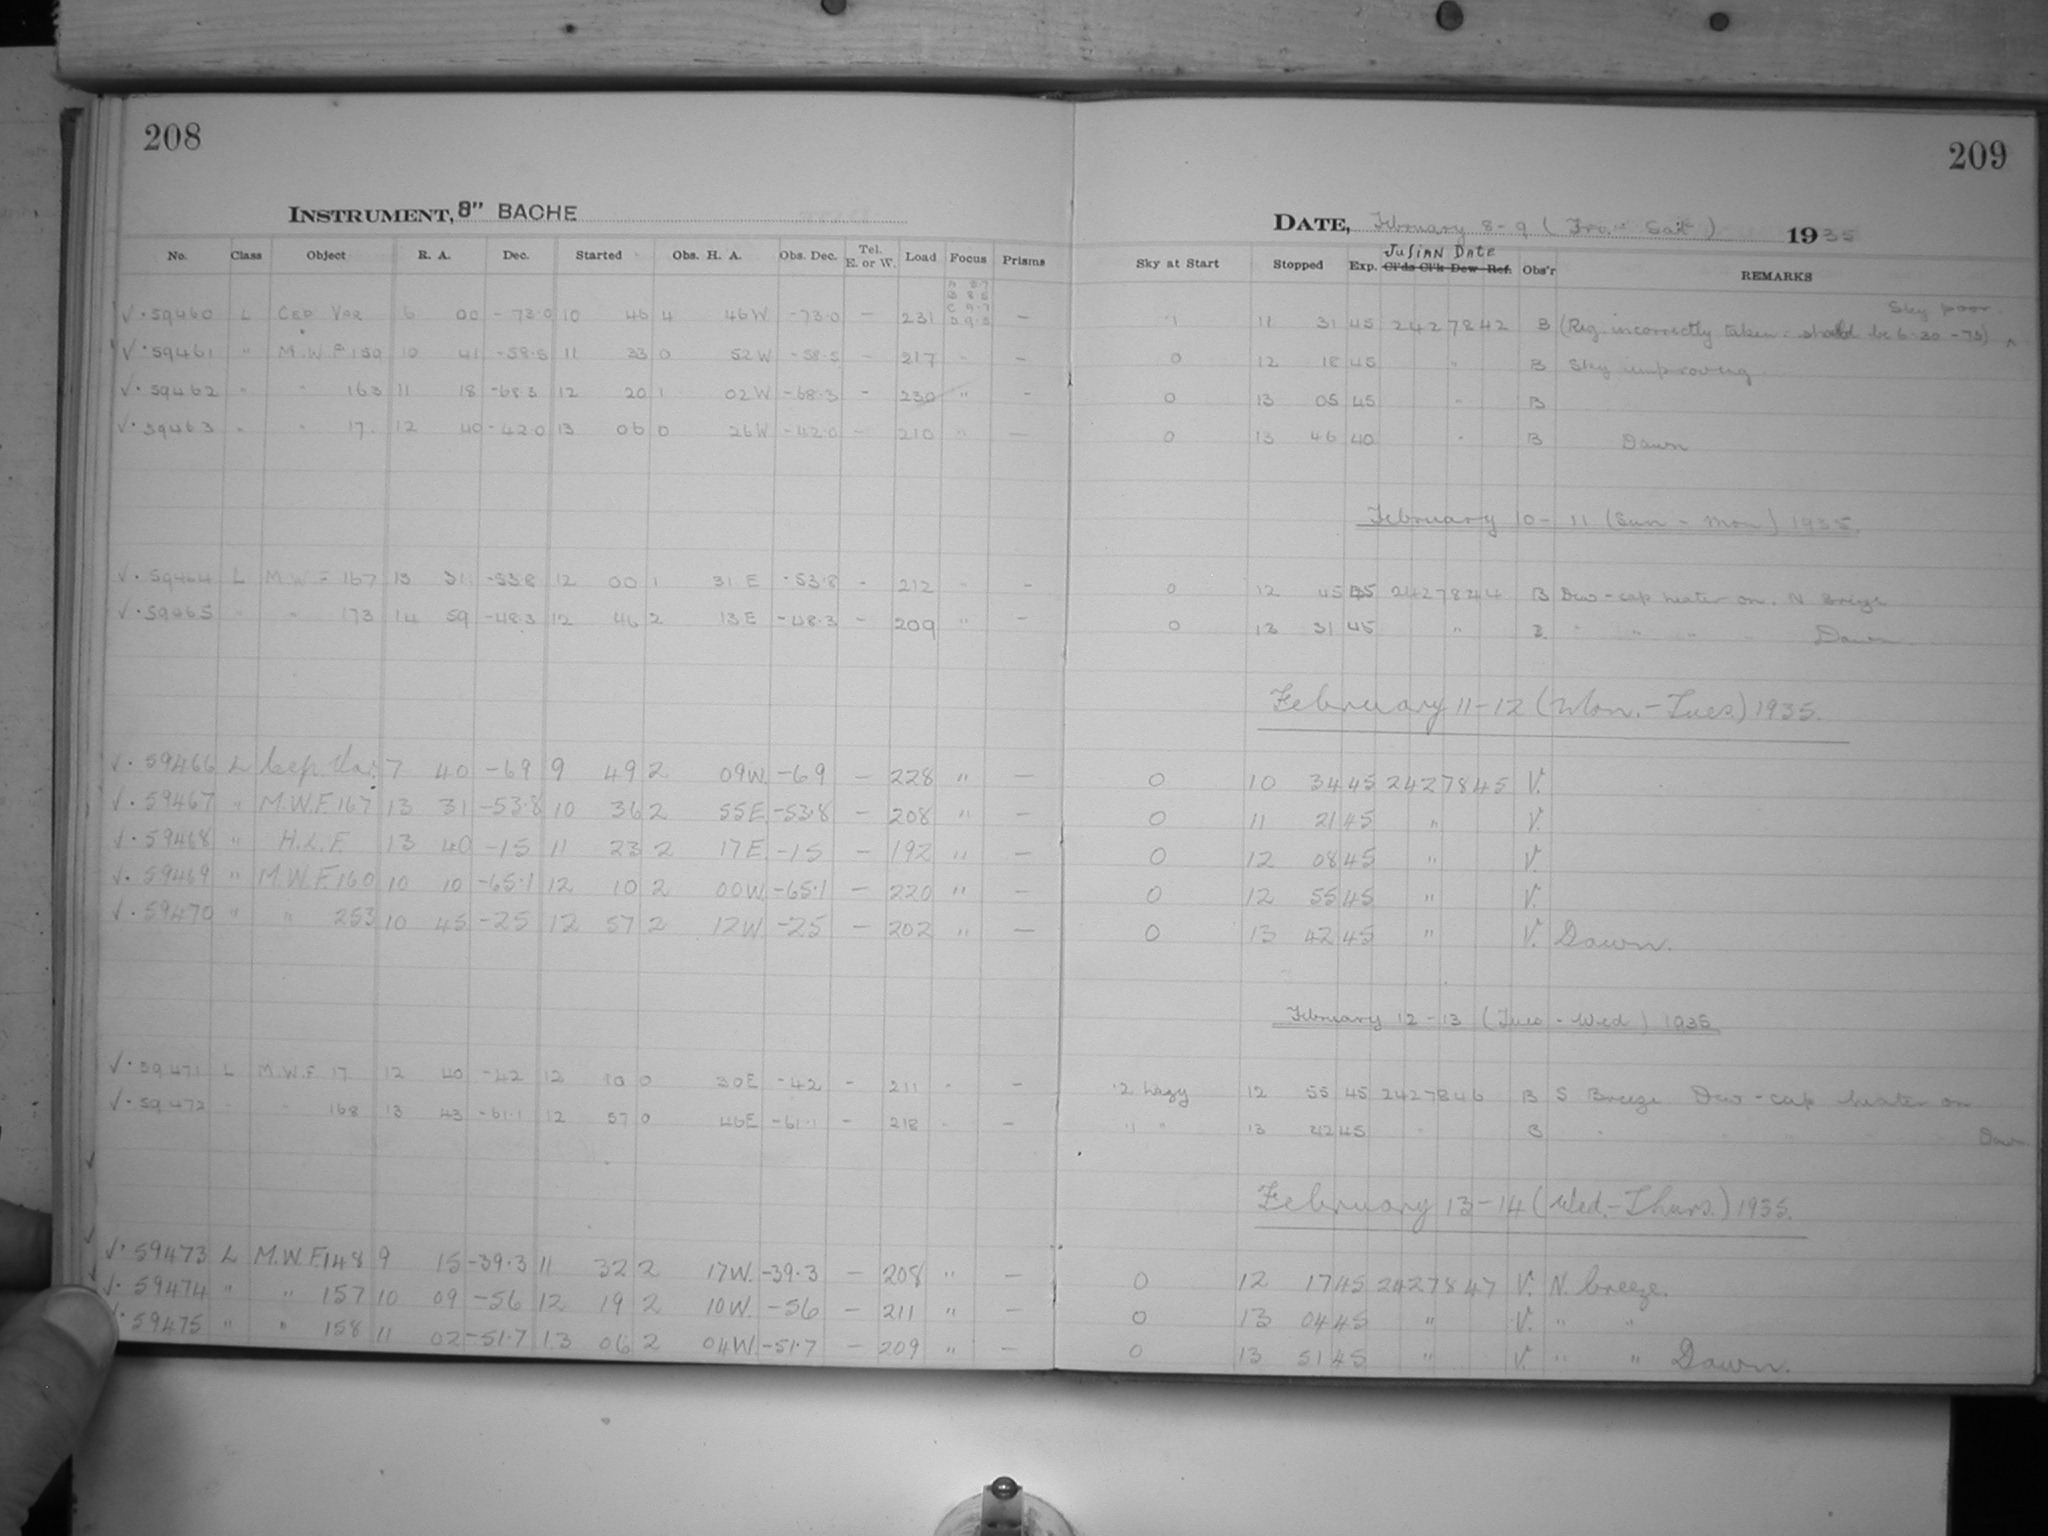 208
INSTRUMENT, 8" BACHE
No. Class Object R. A. Dec. Started Obs. H. A. Obs. Dec. Tel. E. or W. Load Focus Prisms
√ · 59460 L Cep Var 6 00 -73.0 10 46 4 46 W -73.0 — 231 —
√ · 59461 " M.W.F 159 10 41 -58.5 11 33 0 52 W -58.5 - 217 " —
√ · 59462 " " 163 11 18 -68.3 12 20 1 02 W -68.3 - 230 " -
√ · 59463 " " 17 12 40 -42.0 13 06 0 26 W -42.0 — 210 " —
√ · 59464 L M.W.F 167 13 31 -53.8 12 00 1 31 E -53.8 - 212 " -
√ · 59465 " " 173 14 59 -48.3 12 46 2 13 E -48.3 - 209 " -
√ · 59466 L Cep. Var. 7 40 -69 9 49 2 09 W. -69 — 228 " —
√ · 59467 " M.W.F. 167 13 31 -53.8 10 36 2 55 E. -53.8 — 208 " —
√ · 59468 " H.L.F. 13 40 -15 11 23 2 17 E. -15 — 192 " —
√ · 59469 " M.W.F. 160 10 10 -65.1 12 10 2 00 W. -65.1 — 220 " —
√ · 59470 " " 253 10 45 -25 12 57 2 12 W. -25 — 202 " —
√ · 59471 L M.W.F. 17 12 40 -42 12 10 0 30 E -42 - 211 " -
√ · 59472 " " 168 13 43 -61.1 12 57 0 46 E -61.1 - 218 " —
√ · 59473 L M.W.F. 148 9 15 -39.3 11 32 2 17 W. -39.3 — 208 " —
√ · 59474 " " 157 10 09 -56 12 19 2 10 W. -56 — 211 " —
√ · 59475 " " 158 11 02 -51.7 13 06 2 04 W. -51.7 — 209 " —
209
DATE, February 8-9 (Fri. - Sat) 1935
Julian Date
Sky at Start Stopped Exp. Cl'ds Cl'k Dew Ref. Obs'r REMARKS
Sky poor.
1 11 31 45 2427842 B (Reg. incorrectly taken: should be 6.30 -75)
0 12 18 45 " B Sky improving
0 13 05 45 " B
0 13 46 40 " B Dawn
February 10 - 11 (Sun - Mon) 1935.
0 12 45 45 2427844 B Dew-cap heater on. N Breeze
0 13 31 45 " B. " " " " Dawn
February 11-12 (Mon.-Tues.) 1935.
0 10 34 45 2427845 V.
0 11 21 45 " V.
0 12 08 45 " V.
0 12 55 45 " V.
0 13 42 45 " V. Dawn.
February 12-13 (Tues - Wed) 1935
2 hazy 12 55 45 2427846 B S Breeze Dew-cap heater on
" " 13 42 45 " B " Dawn
February 13-14 (Wed.-Thurs.) 1935.
0 12 17 45 2427847 V. N. breeze.
0 13 04 45 " V. " "
0 13 51 45 " V. " " Dawn.